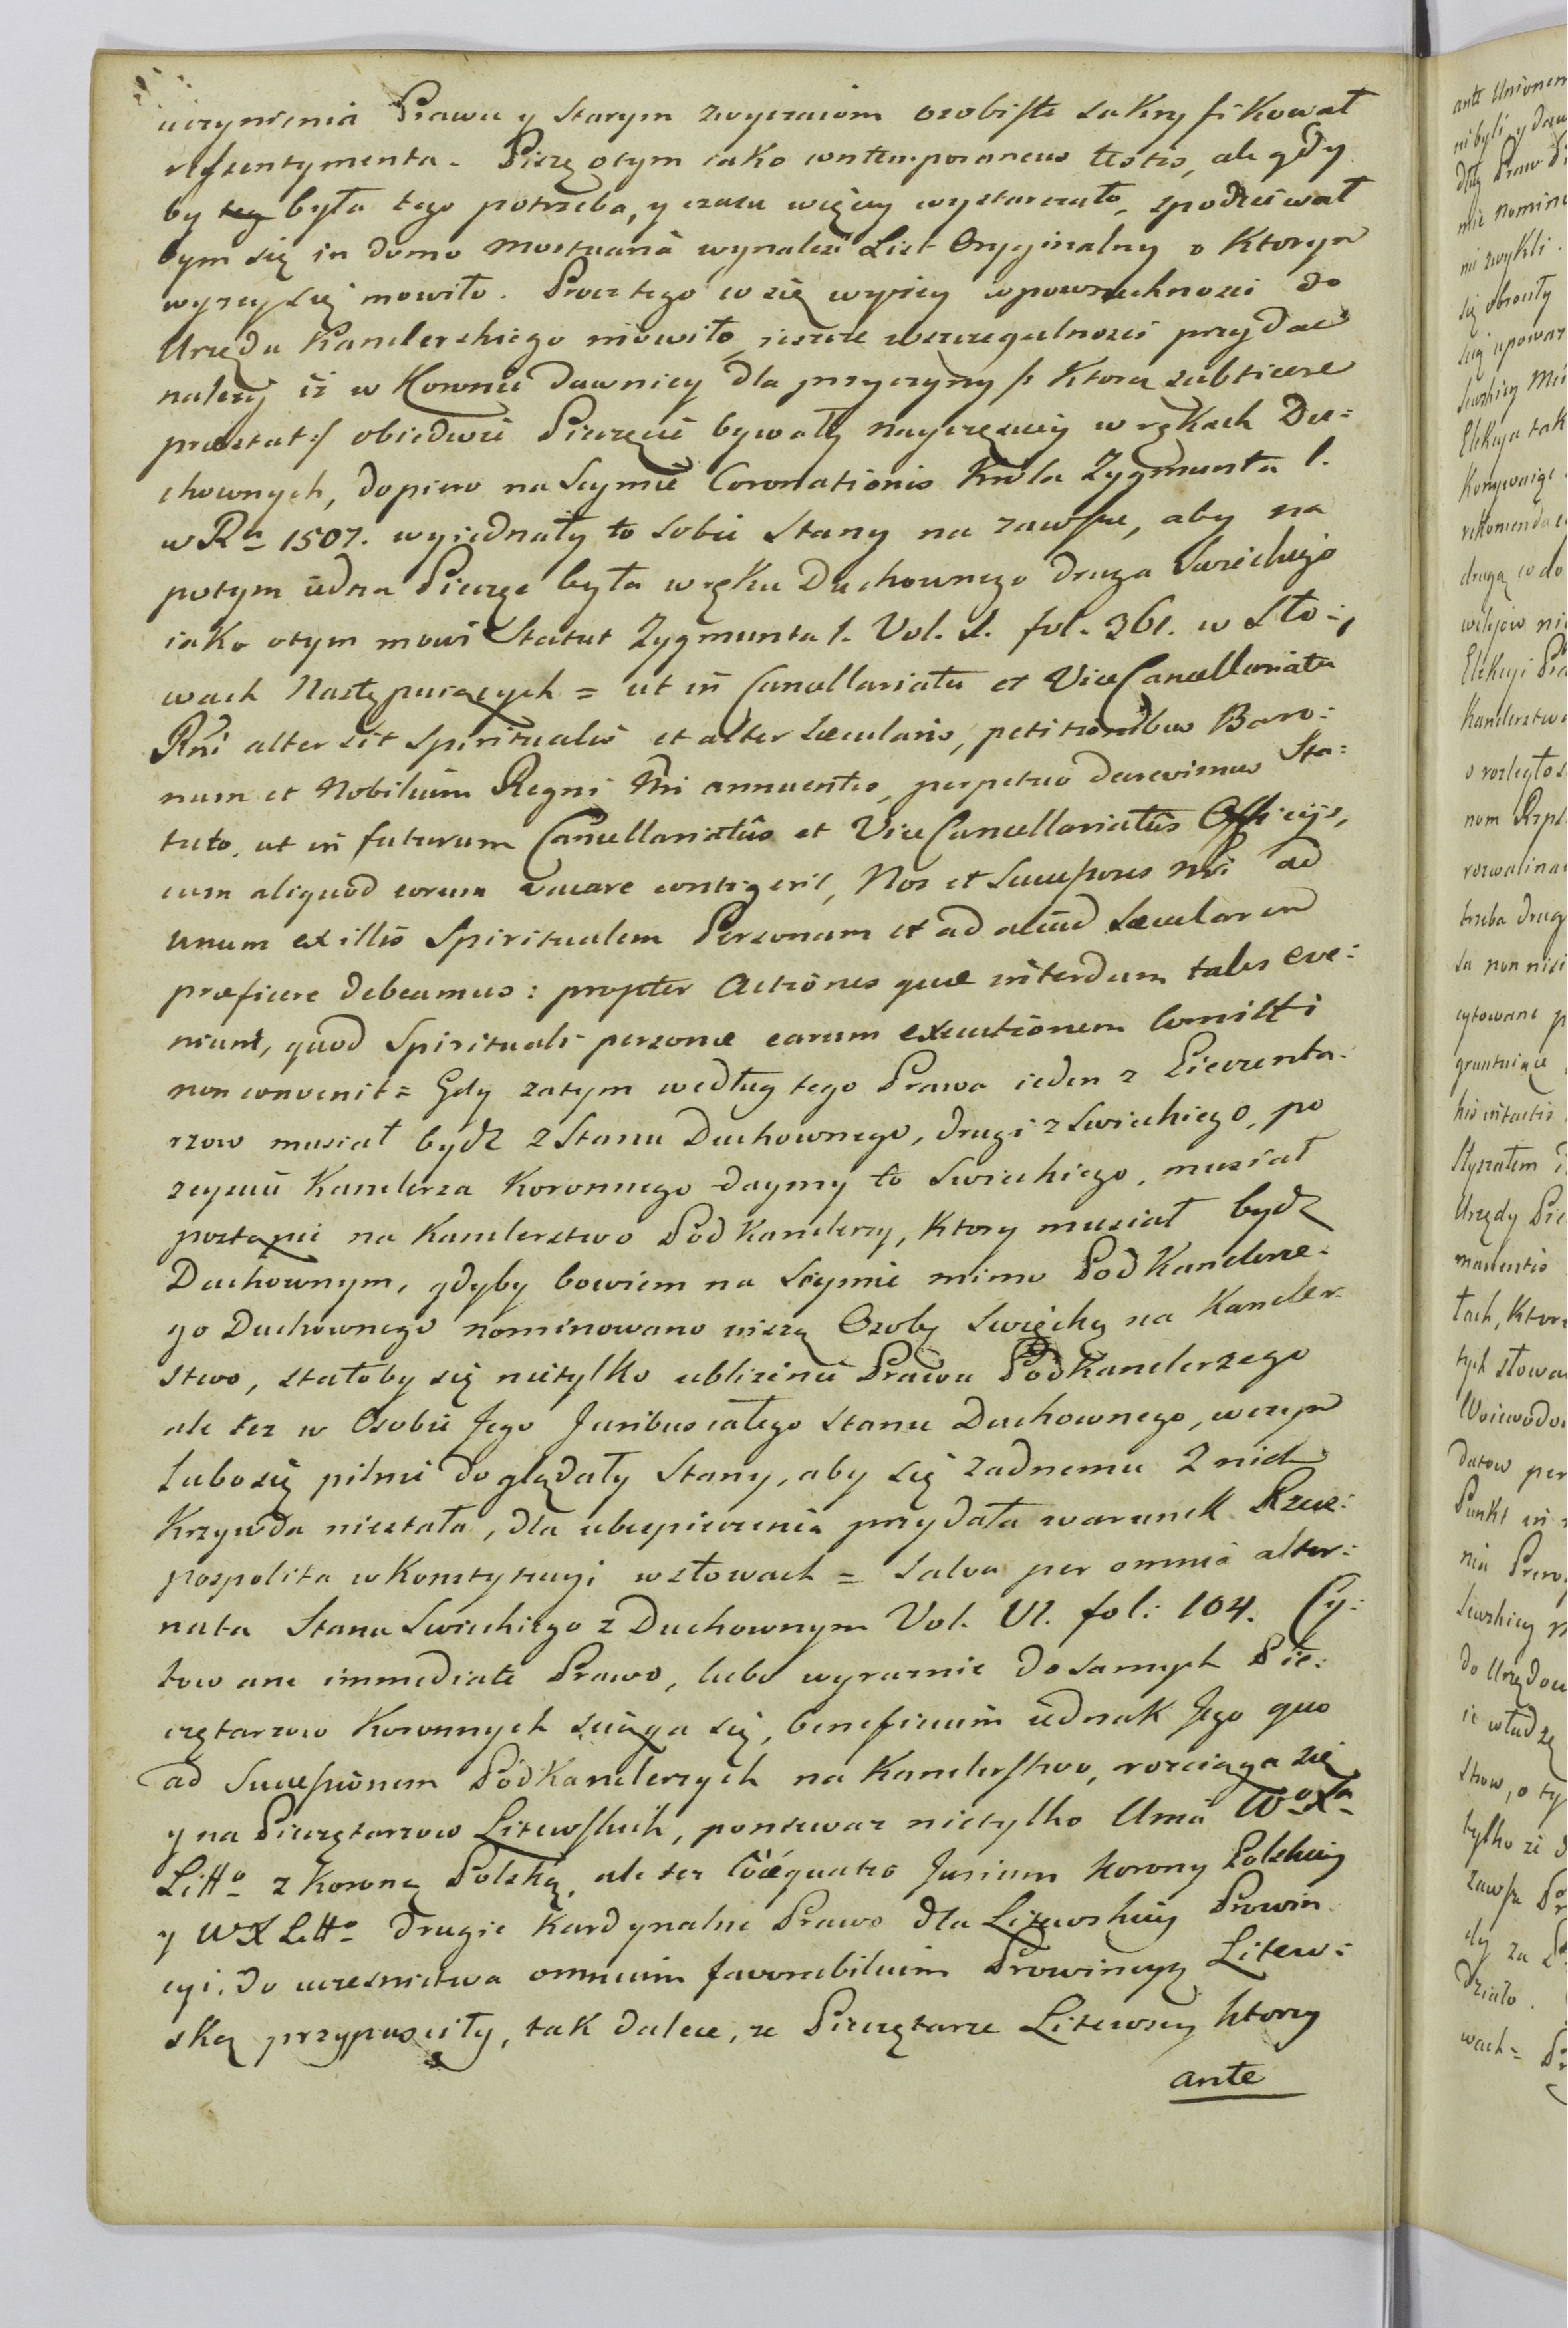 uczynienia Prawu y starym zwyczaiom osobiste sakryfikował
ressentymenta. Piszę o tym iako contemporaneus testis, ale gdy
by była tego potrzeba, y czasu więcey wystarczało, spodziewał
bym się in domo mostuana wynaleść List Oryginalny o ktorym
wyzey się mowiło. Procz tego co się wyziey w powszechnosci do
Urzędu Kanclerskiego mowiło, ieszcze w szczegulnosci przydać
nalezy iz w Koronie dawniey dla przyczyny /: Ktora subticere
praestat :/ obiedwie Pieczęcie bywały nayczęsciey w rękach Du:
chownych, dopiero na Seymie Coronationis Krola Zygmunta I.
w Ru 1507. wyiednały to sobie Stany na zawsze, aby na
potym iedna Pieczęc była w ręku Duchownego druga Swieckiego
iako o tym mowi Statut Zygmunta I. Vol. I. fol. 361. w Sło:
wach Następuiących = ut in Cancellariatu et ViceCancellariatu
Rni alter sit Spiritualis et alter Saecularis, petitionibus Baro:
num et Nobilium Regni Nri annuentes, perpetuo decrevimus Sta:
tuto, ut in futurum Cancellariatûs et ViceCancellariatûs Officijs,
cum aliquod eorum vacare contigerit, Nos et Successores Nri ad
unum ex illis Spiritualem Personam et ad aliud Saecularem
praeficere debeamus: propter Actiones quae interdum tales eve:
niunt, quod Spirituali personae earum executionem Comitti
non convenit = Gdy zatym według tego Prawa ieden z Pieczenta:
rzow musiał bydz z Stanu Duchownego, drugi z Swieckiego, po
zeysciu Kanclerza Koronnego daymy to Swieckiego, musiał
postąpić na Kanclerstwo Podkanclerzy, Ktory musiał bydz
Duchownym, gdyby bowiem na Seymie mimo PodKanclerze:
go Duchownego nominowano inszą Osobę Swiecką na Kancler:
stwo, stałoby się nietylko ublizenie Prawu Podkanclerzego
ale tez w Osobie Jego Juribus całego Stanu Duchownego, w czym
lubo się pilnie doglądały Stany, aby się zadnemu z nich
Krzywda niestała, dla ubespieczenia przydała warunek Rzecz:
pospolita w Konstytucyi w słowach = Salva per omnia alter:
nata Stanu Swieckiego z Duchownym Vol. VI. fol: 104. Cy:
towane immediate Prawo, lubo wyraznie do samych Pie:
czętarzow Koronnych sciąga się, beneficium iednak Jego quo
ad Successionem PodKanclerzych na Kanclerstwo, rosciąga się
y na Pieczętarzow Litewskich, poniewaz nietylko Unia Wo Xa
Litto z Koroną Polską, ale tez Coaequatio Jurium Korony Polskiey
y WX Litto drugie Kardynalne Prawo dla Litewskiey Prowin
cyi, do uczesnictwa omnium favorabilium Prowincyą Litew:
ską przypusciły, tak dalece, ze Pieczętarze Litewscy ktorzy
ante